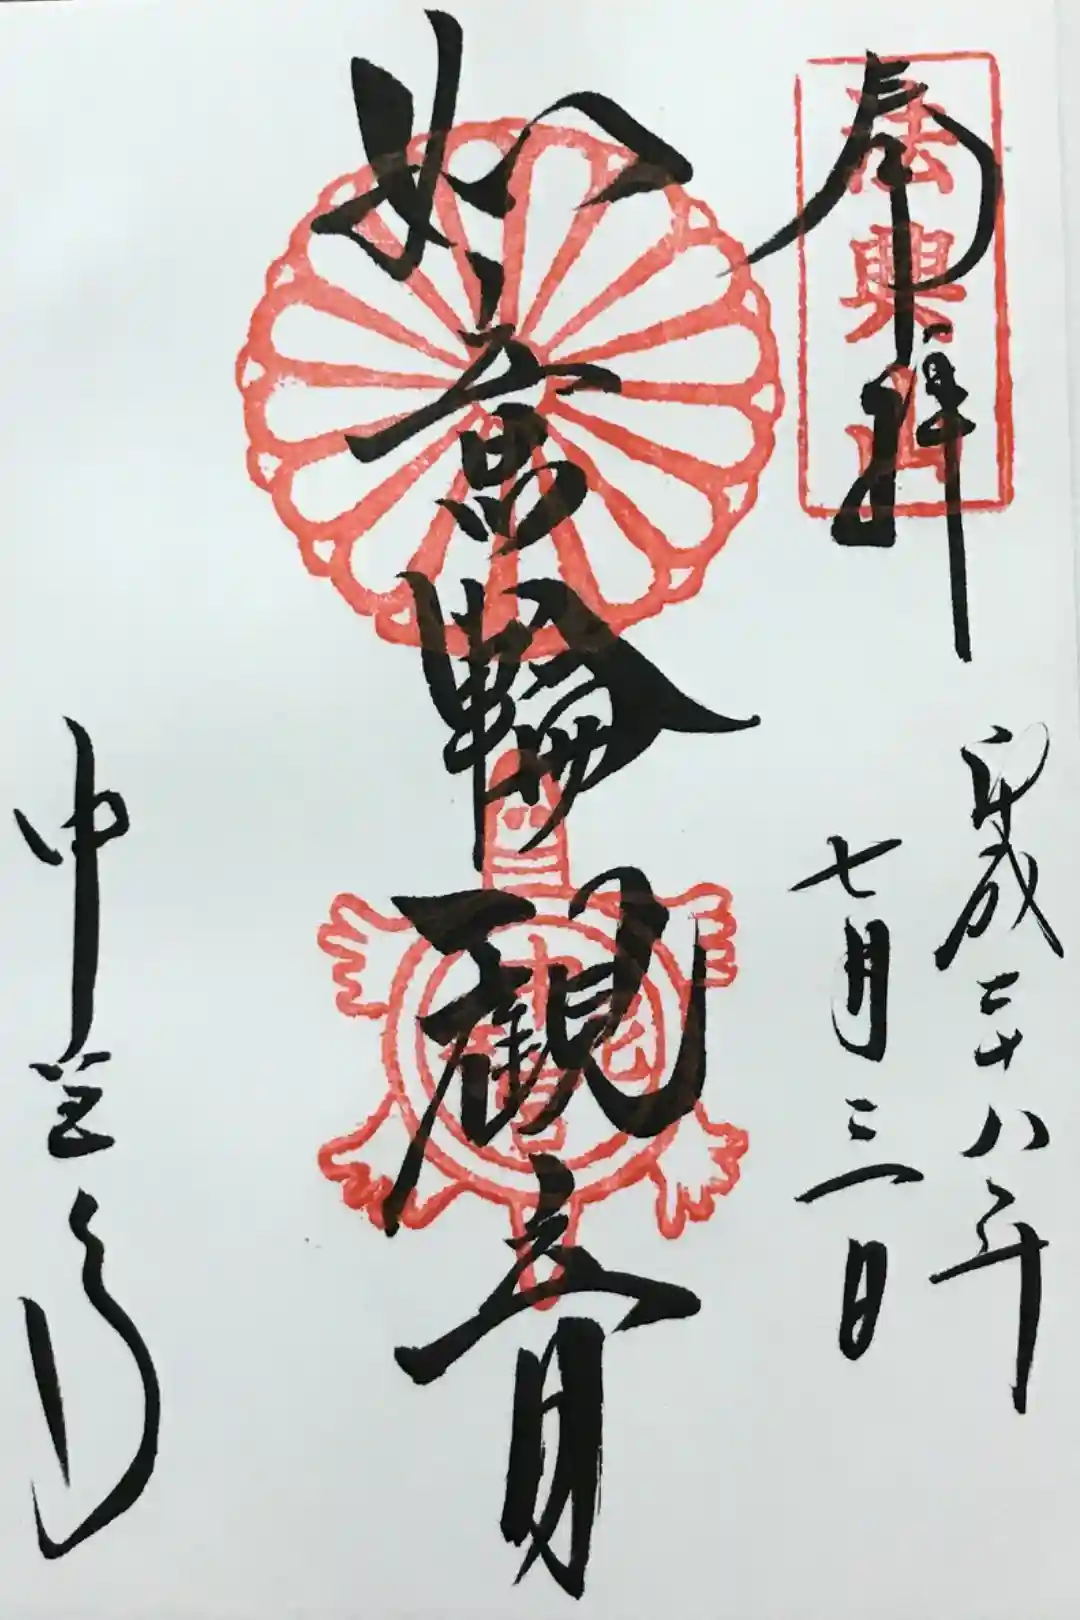 奉拝
法興山
平成二十八年
七月三一日
如意輪観音
中宮寺